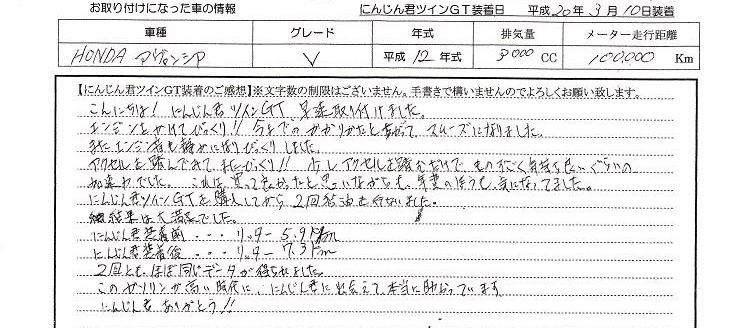 お取り付けになった車の情報　にんじん君ツインGT装着日　平成20年3月10日装着
車種　グレード　年式　排気量　メーター走行距離
HONDA アヴァンシア　V　平成12年式　3000 CC　100,000 Km
【にんじん君ツインGT装着のご感想】※文字数の制限はございません。手書きで構いませんのでよろしくお願い致します。
こんにちは! にんじん君ツインGT 早速取り付けました。
エンジンをかけてびっくり!! 今までのかかりかたとちがって スムーズになりました。
またエンジン音も静かになりびっくりしました。
アクセルを踏んでみてまたびっくり!! 少しアクセルを踏むだけで ものすごく気持ち良いぐらいの
加速力でした。これは買って良かったと思いながらも、実費のほうも気になってました。
にんじん君ツインGTを購入してから 2回給油を行いました。
結果は大満足でした。
にんじん君装着前・・・リッター 5.9km
にんじん君装着後・・・リッター 7.3km
2回ともほぼ同じデータが得られました。
このガソリンが高い時代に、にんじん君に出会えて本当に助かっています
にんじん君 ありがとう!!